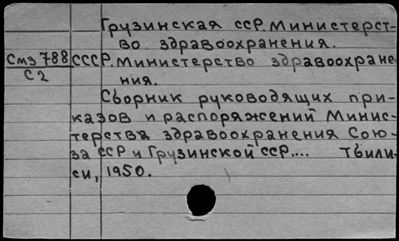 Грузинская ССР. Министерст-
во здравоохранения.
Смз 788 СССР. Министерство здравоохране-
С2 ния.
Сборник руководящих при-
казов и распоряжений Минис-
терства здравоохранения Сою-
за ССР и Грузинской ССР.... Тбили-
си, 1950.